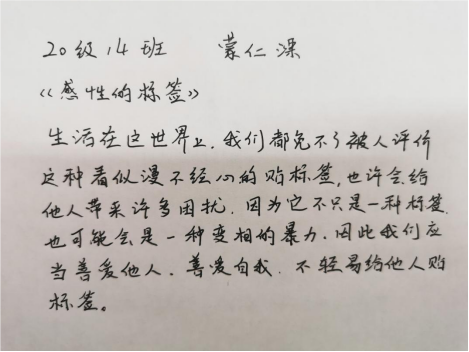 20级14班 蒙仁深
《感性的标签》
生活在这世界上,我们都免不了被人评价
这种看似漫不经心的贴标签,也许会给
他人带来许多困扰,因为它不只是一种标签
也可能会是一种变相的暴力,因此我们应
当善爱他人,善爱自我,不轻易给他人贴
标签。